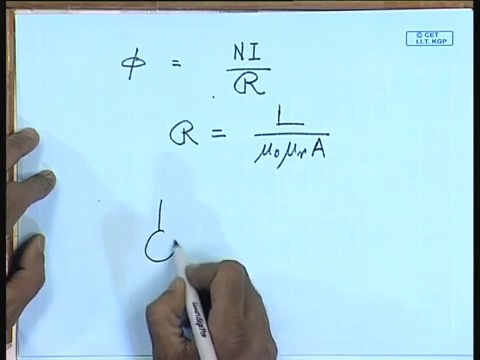 © CET
I.I.T. KGP
ϕ = NI / R
R = L / μ₀ μᵣ A